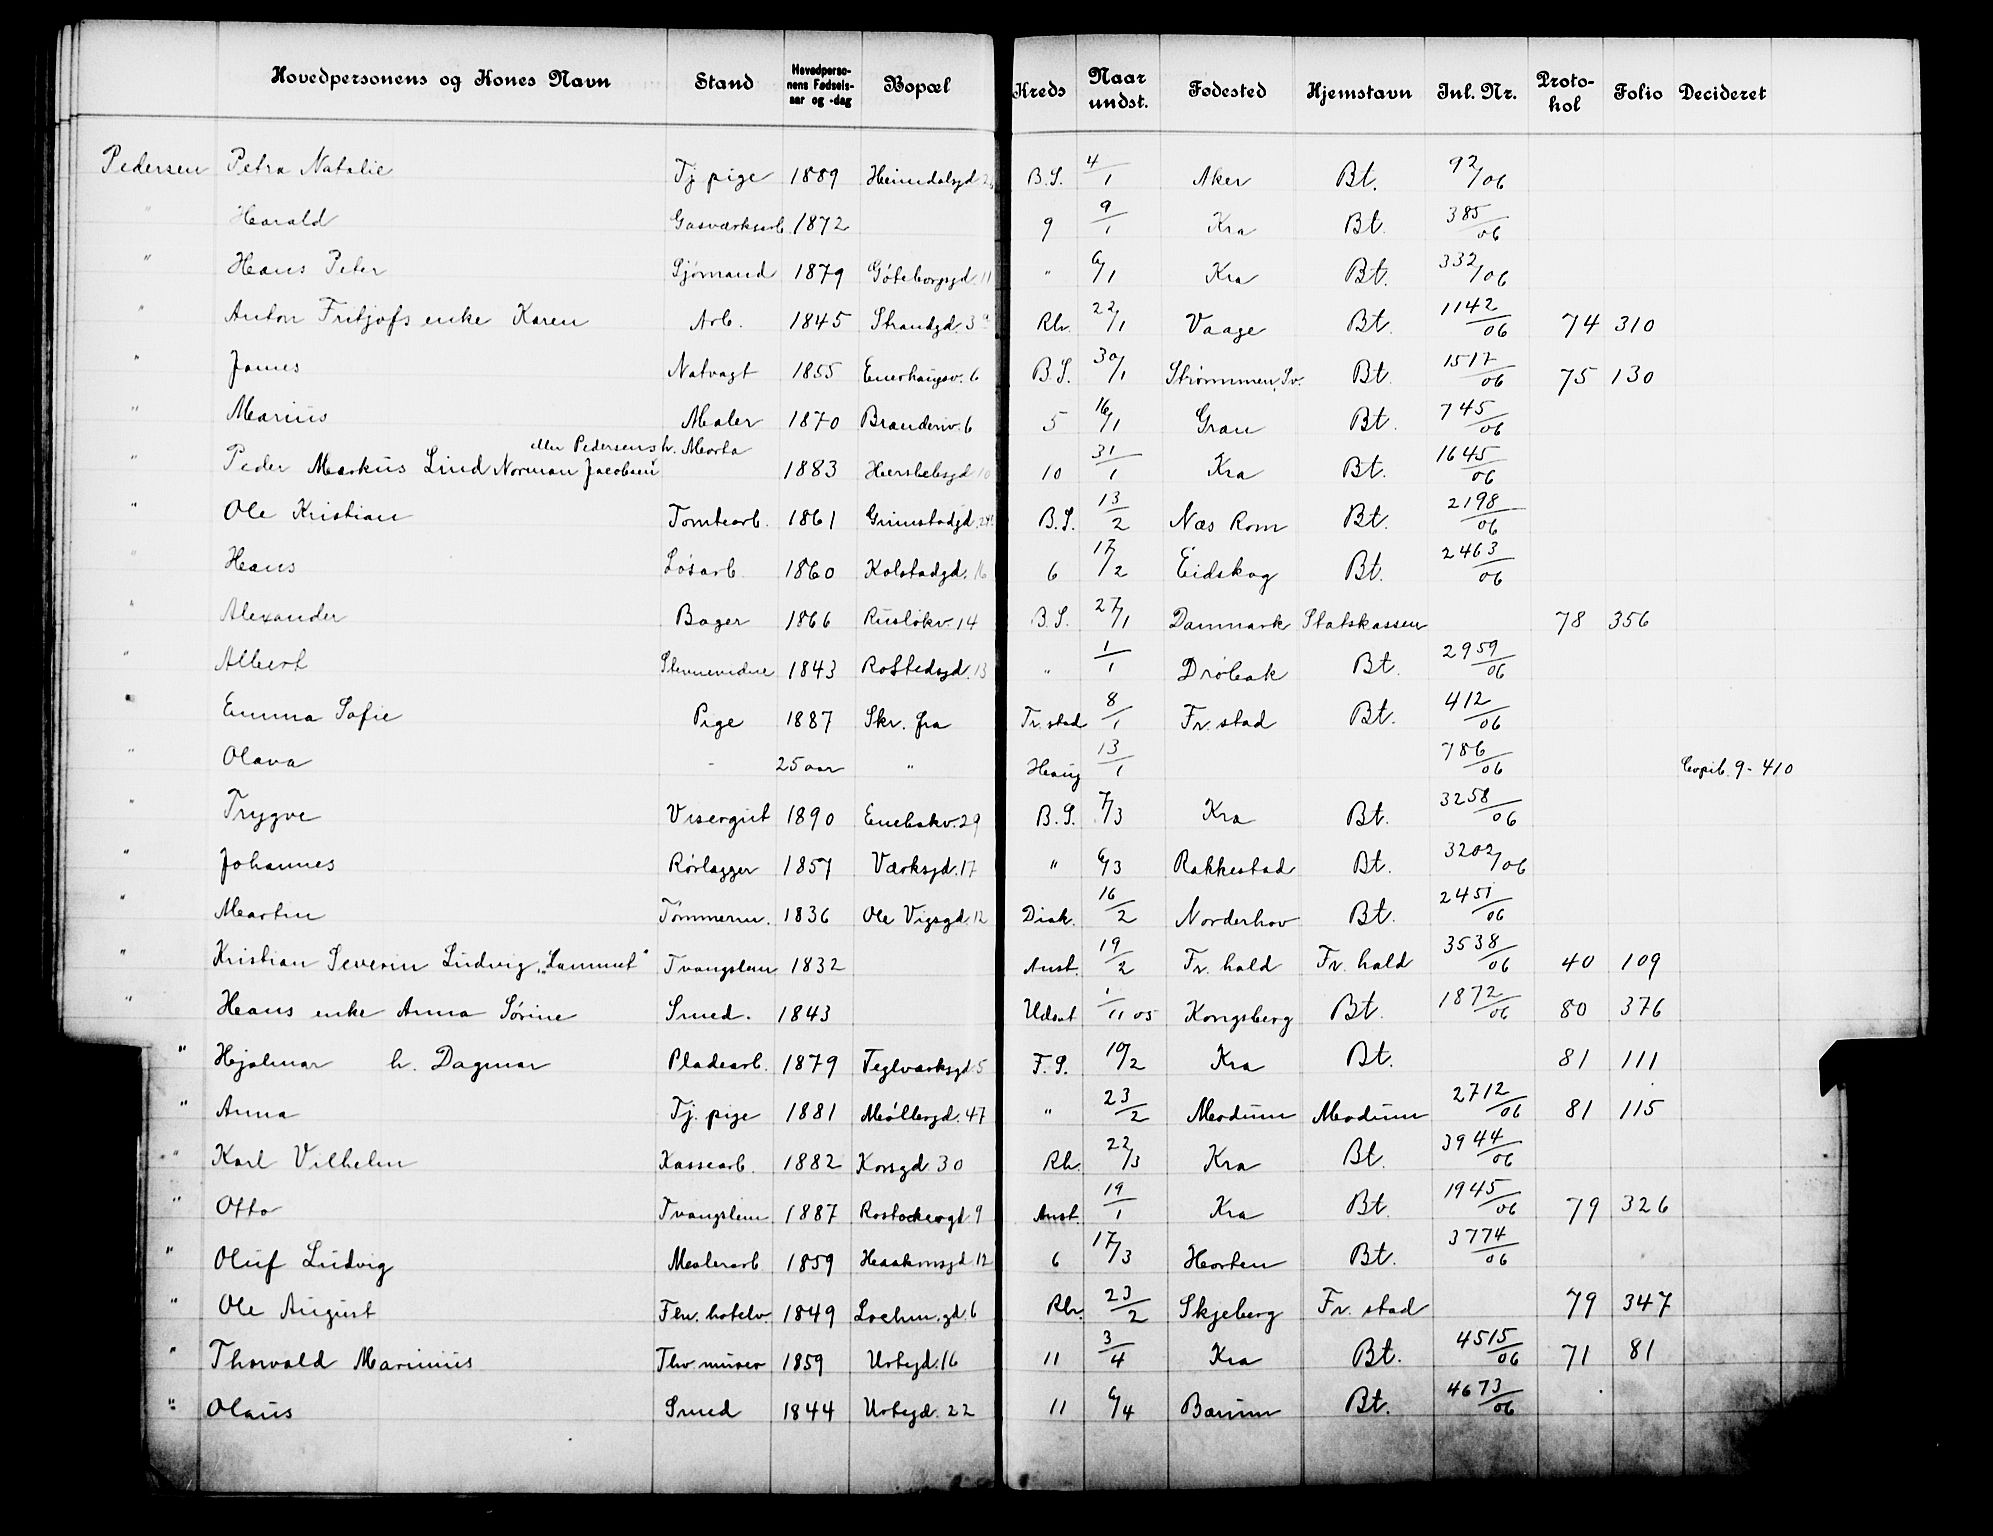 Hovedpersonens og Kones Navn Stand Hovedpersonens Fødselsaar og -dag Bopæl Kreds Naar undst. Fødested Hjemstavn Jnl. Nr. Protokol Folio Decideret
Pedersen Petra Natalie Tj. pige 1889 Heimdalsgd. B.S. 4/1 Aker Bt. 92/06
" Harald Gasværksarb. 1872 9 9/1 Kra Bt. 385/06
" Hans Peter Sjømand 1879 Gøteborggd. 11 " 6/1 Kra Bt. 332/06
" Anton Fritjofs enke Karen Arb. 1845 Strandgd. 3 Rh. 22/1 Vaage Bt. 1142/06 74 310
" James Natvagt 1855 Enerhaugsv. 6 B.S. 30/1 Strømmen, Sv. Bt. 1517/06 75 130
" Marius Maler 1870 Branderiv. 6 5 16/1 Gran Bt. 745/06
eller Pedersens h. Marta
" Peder Markus Lind Norman Jacobsen 1883 Herslebsgd 10 10 31/1 Kra Bt. 1645/06
" Ole Kristian Tomtearb. 1861 Grimstadgd. B.S. 13/2 Næs Rom Bt. 2198/06
" Hans Løsarb. 1860 Kolstadgd. 16 6 17/2 Eidskog Bt. 2463/06
" Alexander Bager 1866 Rusløkv. 14 B.S. 27/1 Danmark Statskassen 78 356
" Albert 1843 Rostedsgd. 13 " 1/1 Drøbak Bt. 2959/06
" Emma Sofie Pige 1887 Skr. fra Fr. stad 8/1 Fr. stad Bt. 412/06
" Olava - 25 aar " Haug 13/1 786/06 Copib. 9 - 410
" Trygve Visergut 1890 Enebakv. 29 B.S. 7/3 Kra Bt. 3258/06
" Johannes Rørlægger 1857 Værksgd. 17 " 6/3 Rakkestad Bt. 3202/06
" Martin Tømmerm. 1836 Ole Vigsgd. 12 Diak. 16/2 Norderhov Bt. 2451/06
" Kristian Severin Ludvig, "Lammet" Tvangslem 1832 Anst. 19/2 Fr. hald Fr. hald 3538/06 40 109
" Hans enke Anna Sørine Smed. 1843 Udsat 1/11 05 Kongsberg Bt. 1872/06 80 376
" Hjalmar h. Dagmar Pladearb. 1879 Teglværksgd. 5 F.S. 10/2 Kra Bt. 81 111
" Anna Tj. pige 1881 Møllergd. 47 " 23/2 Modum Modum 2712/06 81 115
" Karl Vilhelm Kassearb. 1882 Korsgd. 30 Rh. 22/3 Kra Bt. 3944/06
" Otto Tvangslem 1887 Rostockergt 9 Anst. 19/1 Kra Bt. 1945/06 79 326
" Oluf Ludvig Malerarb. 1859 Haakonsgd 12 6 17/3 Horten Bt. 3774/06
" Ole August Fhv. hotelv. 1849 Lochm. gd. 6 Rh. 23/2 Skjeberg Fr. stad 79 347
" Thorvald Marinius Fhv murer 1859 Urtegd. 16 11 3/4 Kra Bt. 4515/06 71 81
" Olaus Smed 1844 Urtegd. 22 11 6/4 Bærum Bt. 4673/06